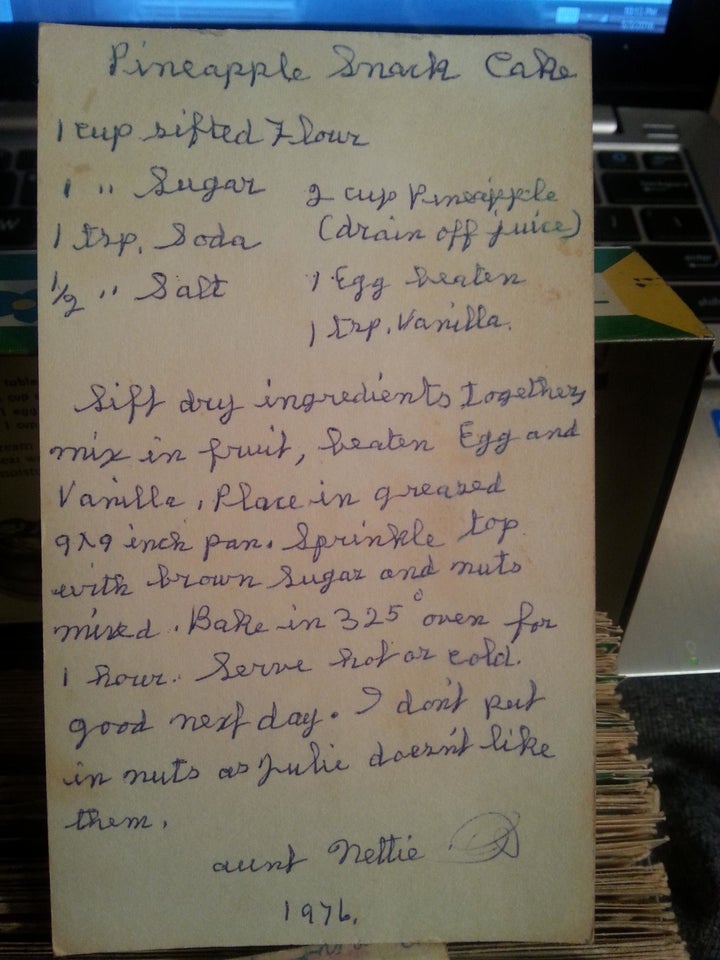 Pineapple Snack Cake
1 cup sifted Flour
1 " Sugar
1 tsp. Soda
1/2 " Salt
2 cup Pineapple
(drain off juice)
1 Egg beaten
1 tsp. Vanilla.
Sift dry ingredients together,
mix in fruit, beaten Egg and
Vanilla. Place in greased
9x9 inch pan. Sprinkle top
with brown sugar and nuts
mixed. Bake in 325° oven for
1 hour. Serve hot or cold.
good next day. I don't put
in nuts as Julie doesn't like
them.
aunt Nettie
1976.